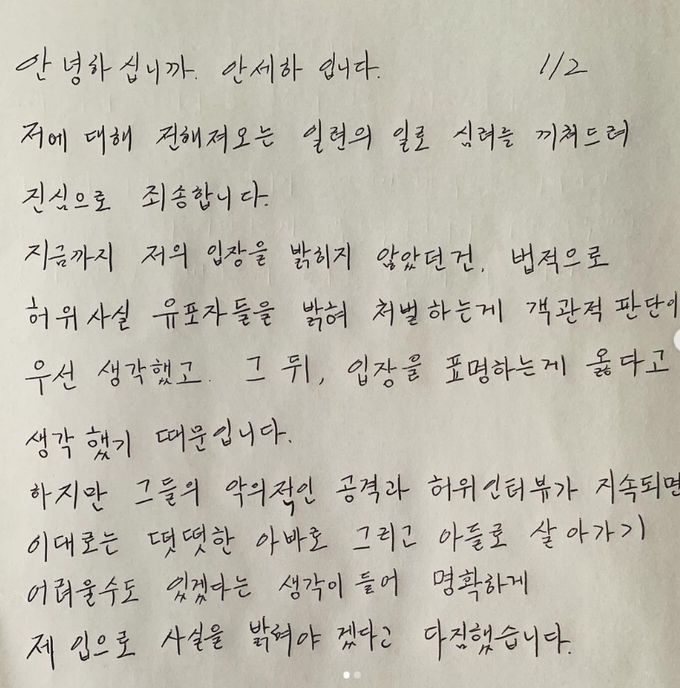 안녕하십니까. 안세하 입니다. 1/2
저에 대해 전해져오는 일련의 일로 심려를 끼쳐드려
진심으로 죄송합니다.
지금까지 저의 입장을 밝히지 않았던건, 법적으로
허위사실 유포자들을 밝혀 처벌하는게 객관적 판단이
우선 생각했고. 그 뒤, 입장을 표명하는게 옳다고
생각했기 때문입니다.
하지만 그들의 악의적인 공격과 허위인터뷰가 지속되면
이대로는 떳떳한 아빠로 그리고 아들로 살아가기
어려울수도 있겠다는 생각이 들어 명확하게
제 입으로 사실을 밝혀야 겠다고 다짐했습니다.